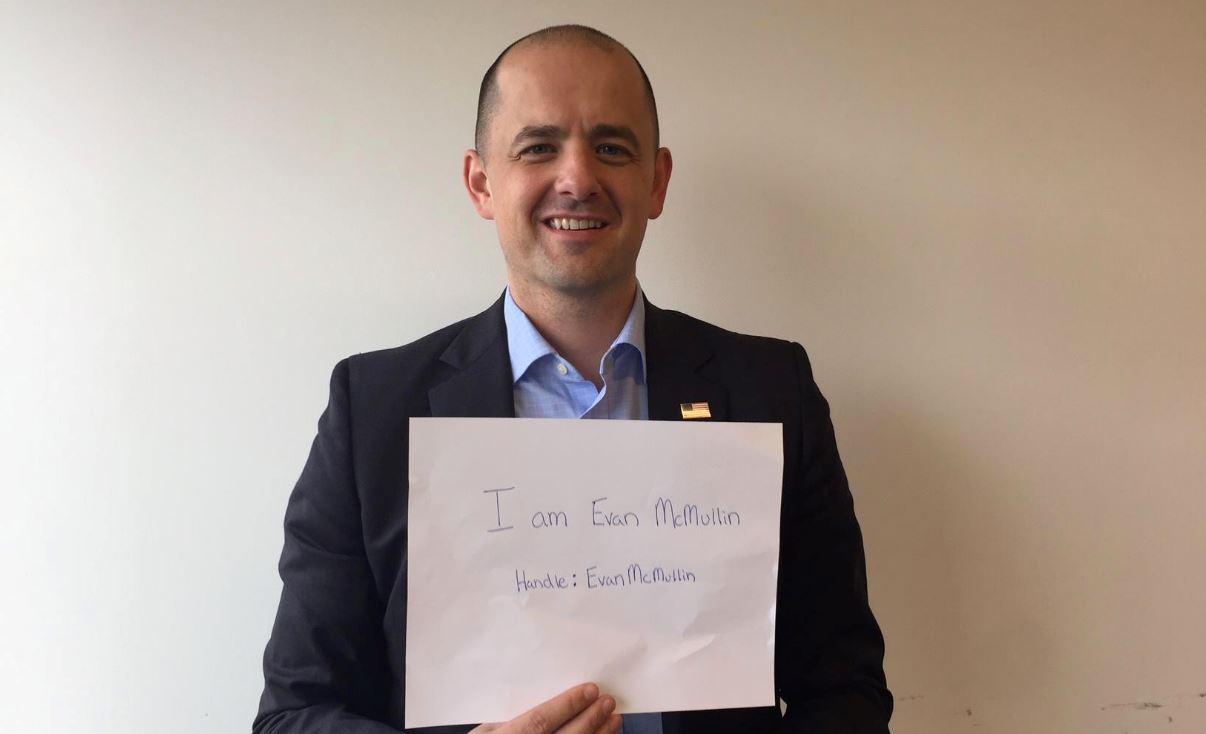 I am Evan McMullin
Handle: EvanMcMullin